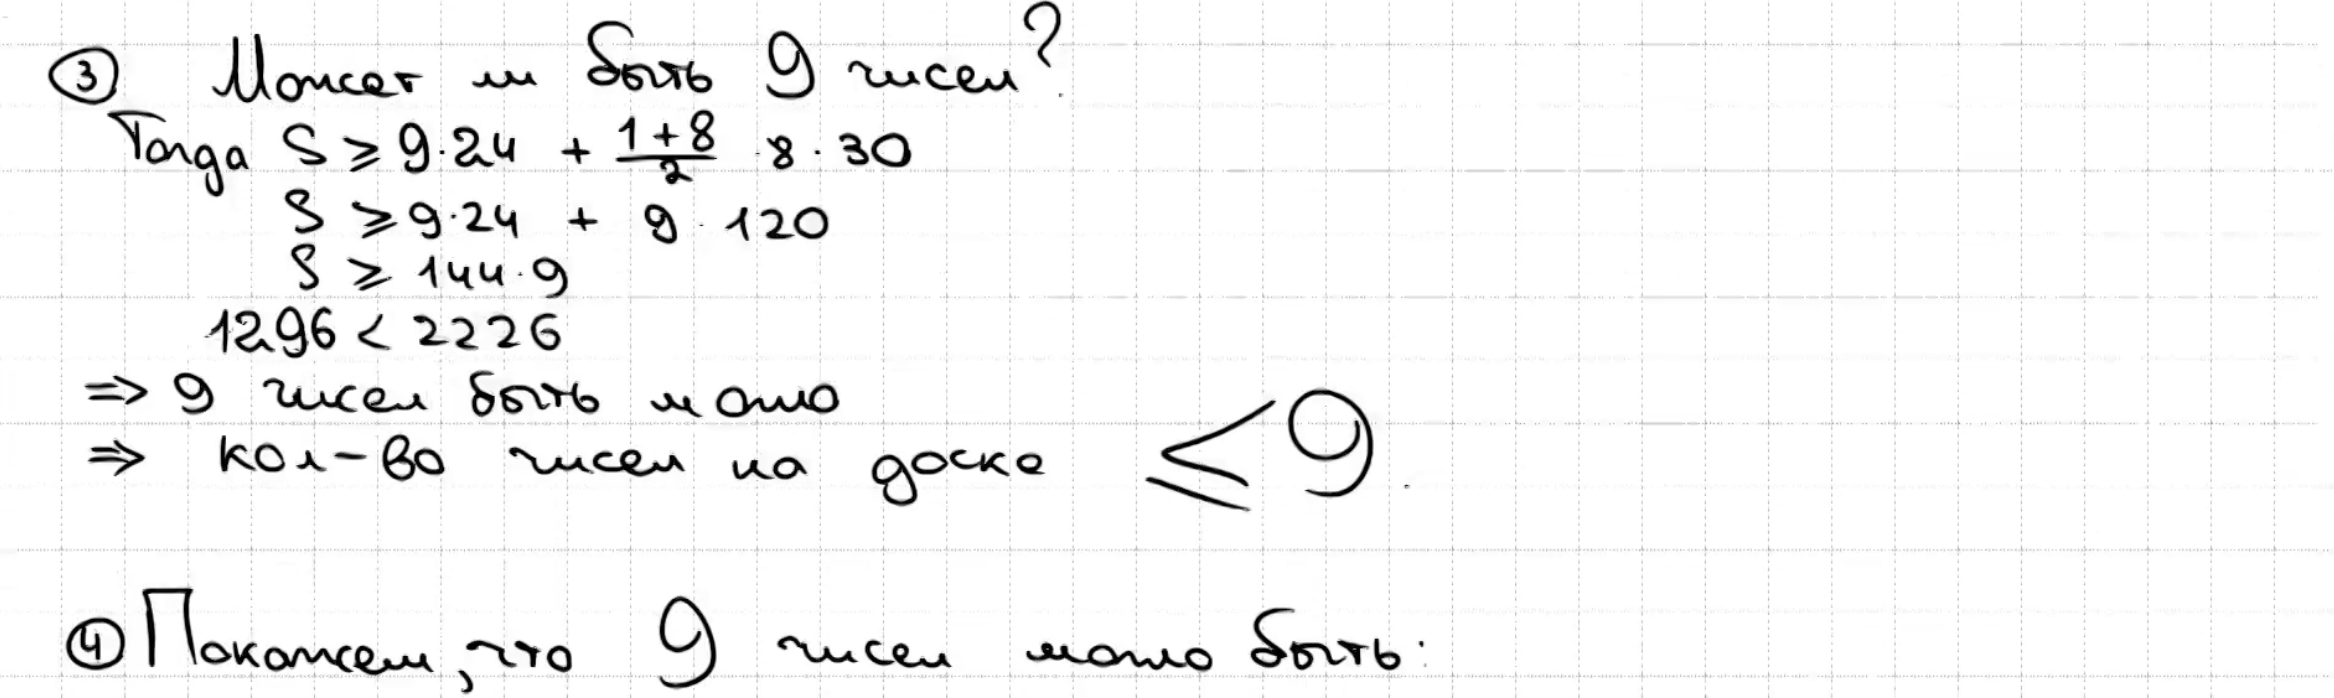 ③ Может ли быть 9 чисел?
Тогда S ⩾ 9·24 + (1+8)/2 · 8 · 30
S ⩾ 9·24 + 9 · 120
S ⩾ 144·9
1296 < 2226
⇒ 9 чисел быть могло
⇒ кол-во чисел на доске ⩽ 9.
④ Покажем, что 9 чисел могло быть: